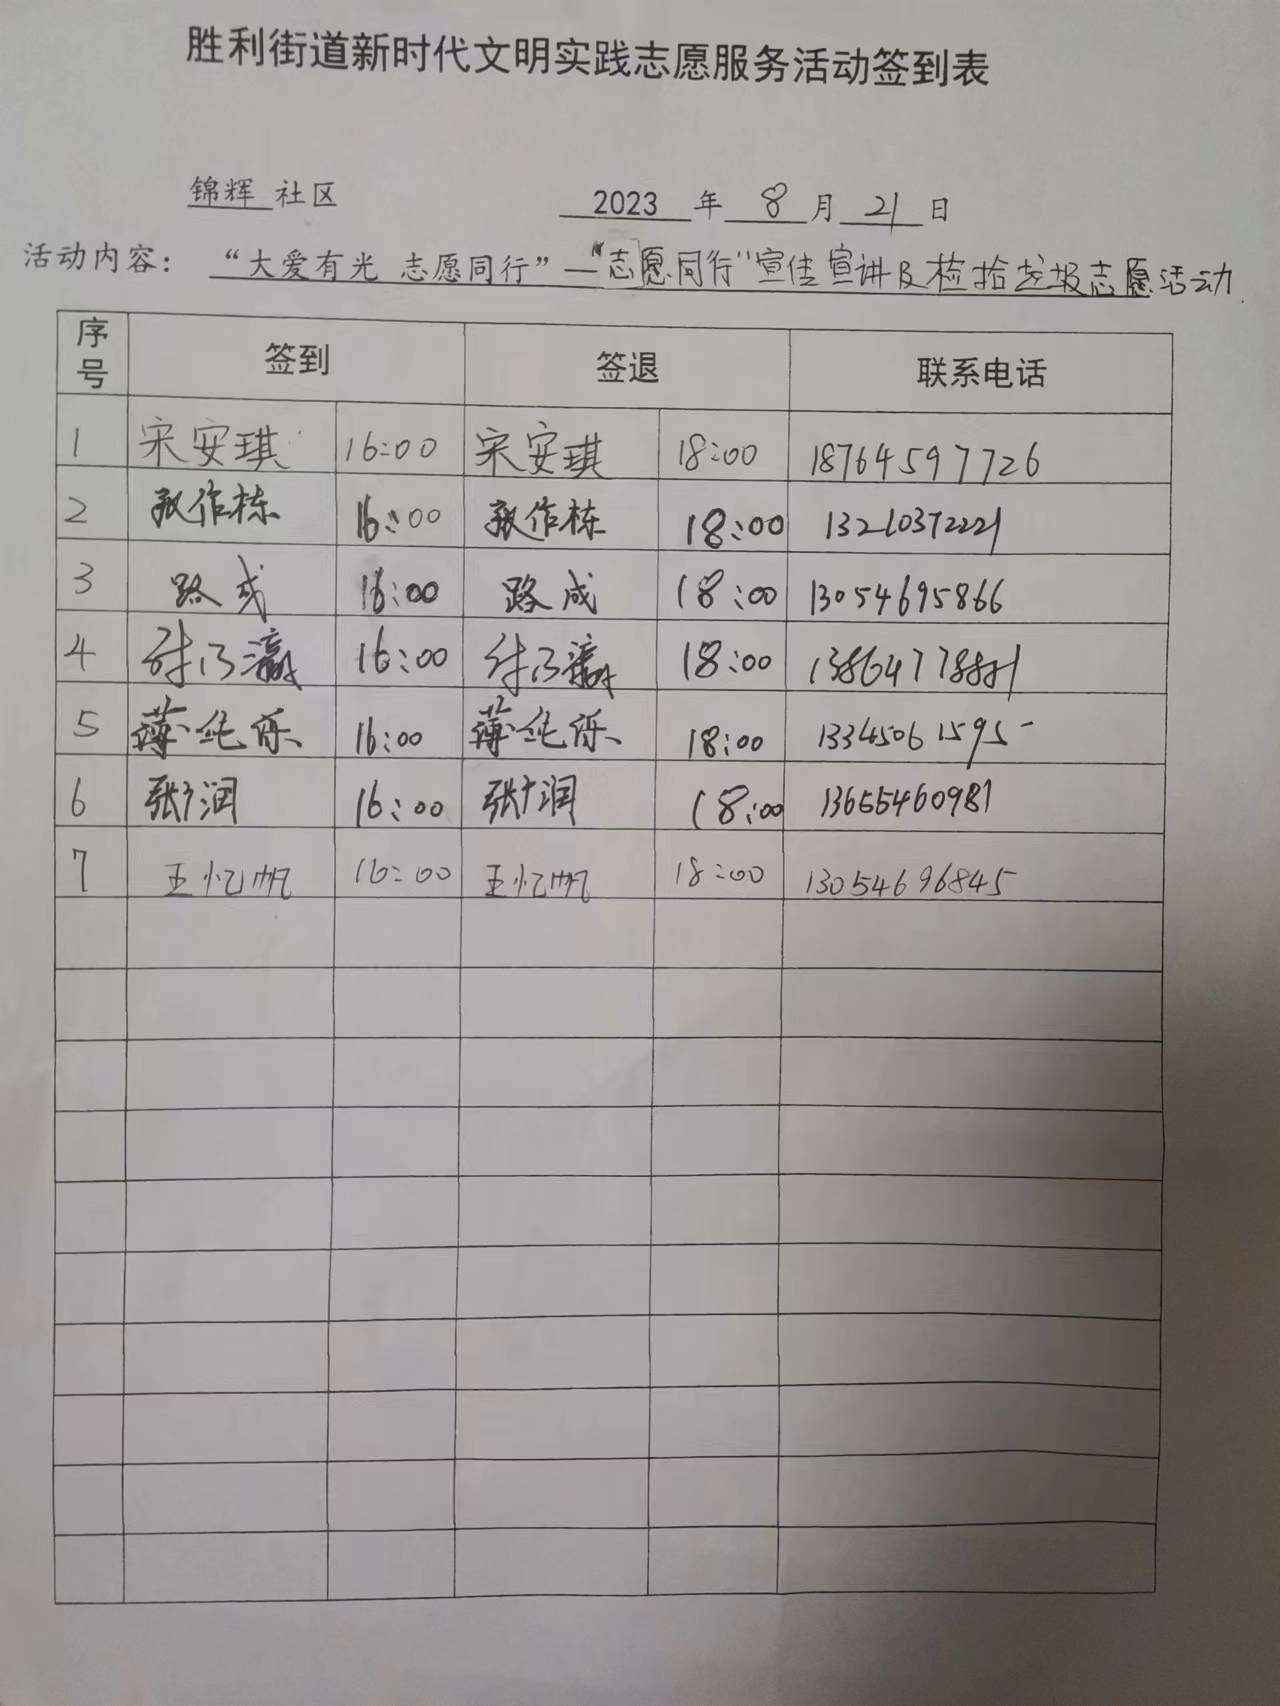 胜利街道新时代文明实践志愿服务活动签到表
锦辉 社区 2023 年 8 月 21 日
活动内容： “大爱有光 志愿同行”—“志愿同行”宣传宣讲及捡拾垃圾志愿活动
序号 签到 签退 联系电话
1 宋安琪 16:00 宋安琪 18:00 18764597726
2 作栋 16:00 作栋 18:00 13210372221
3 路成 16:00 路成 18:00 13054695866
4 16:00 18:00
5 薄纯 16:00 薄纯 18:00 13345061595
6 张广润 16:00 张广润 18:00 13655460981
7 王忆帆 16:00 王忆帆 18:00 13054696845